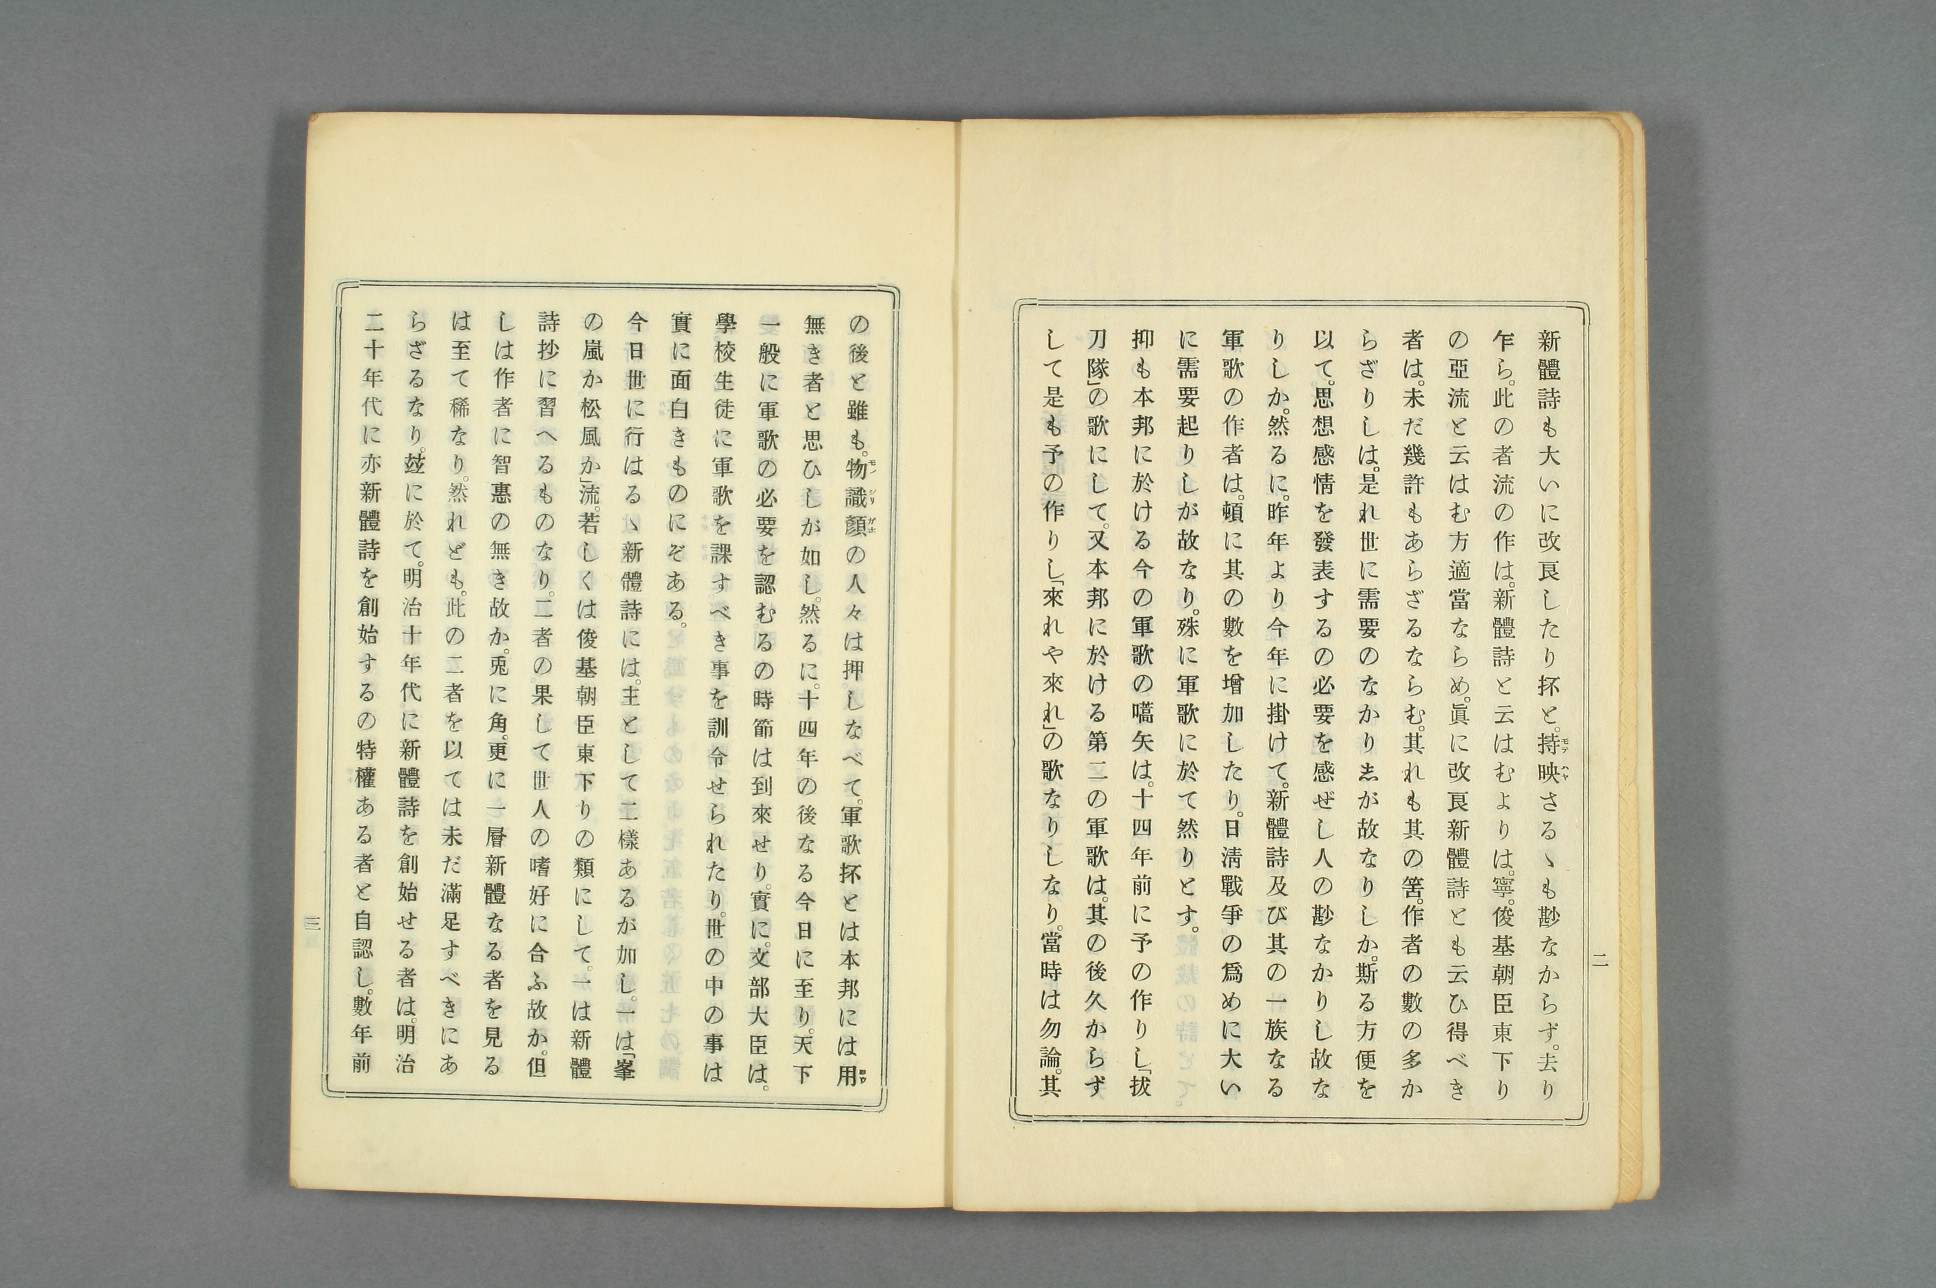 新體詩も大いに改良したり抔と。持映さるゝも尠なからず。去り
乍ら。此の者流の作は。新體詩と云はむよりは。寧。俊基朝臣東下り
の亞流と云はむ方適當ならめ。眞に改良新體詩とも云ひ得べき
者は。未だ幾許もあらざるならむ。其れも其の筈。作者の數の多か
らざりしは。是れ世に需要のなかりしが故なりしか。斯る方便を
以て。思想感情を發表するの必要を感ぜし人の尠なかりし故な
りしか。然るに。昨年より今年に掛けて。新體詩及び其の一族なる
軍歌の作者は。頓に其の數を增加したり。日淸戰爭の爲めに大い
に需要起りしが故なり。殊に軍歌に於て然りとす。
抑も本邦に於ける今の軍歌の嚆矢は。十四年前に予の作りし「拔
刀隊」の歌にして。又本邦に於ける第二の軍歌は。其の後久からず
して是も予の作りし「來れや來れ」の歌なりしなり。當時は勿論。其
二
の後と雖も。物識顏の人々は押しなべて。軍歌抔とは本邦には用
無き者と思ひしが如し。然るに。十四年の後なる今日に至り。天下
一般に軍歌の必要を認むるの時節は到來せり。實に。文部大臣は。
學校生徒に軍歌を課すべき事を訓令せられたり。世の中の事は
實に面白きものにぞある。
今日世に行はるゝ新體詩には。主として二樣あるが加し。一は「峯
の嵐か松風か」流。若しくは俊基朝臣東下りの類にして。一は新體
詩抄に習へるものなり。二者の。果して世人の嗜好に合ふ故か。但
しは作者に智惠の無き故か。兎に角。更に一層新體なる者を見る
は至て稀なり。然れども。此の二者を以ては未だ滿足すべきにあ
らざるなり。玆に於て。明治十年代に新體詩を創始せる者は。明治
二十年代に亦新體詩を創始するの特權ある者と自認し。數年前
三